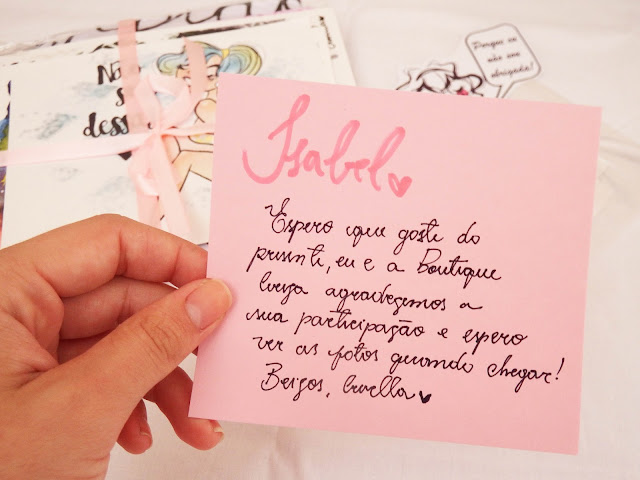 Isabel
Espero que goste do
presente, eu e a Boutique
agradecemos a
sua participação e espero
ver as fotos quando chegar!
Beijos,
Porque eu
não sou
obrigada!